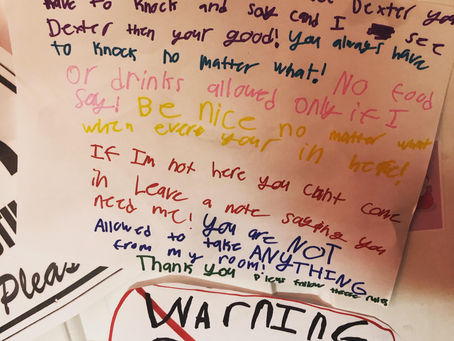 Dexter you
have to knock and say cand I see
Dexter then your good! You always have
to knock no matter what! No food
Or drinks allowed only if I
say! Be nice no matter what
when every your in here!
If Im not here you cant come
in Leave a note saying you
need me! You are NOT
Allowed to take ANYTHING
from my room!
Thank you Pleas follow these rules
Pleas
WARNING